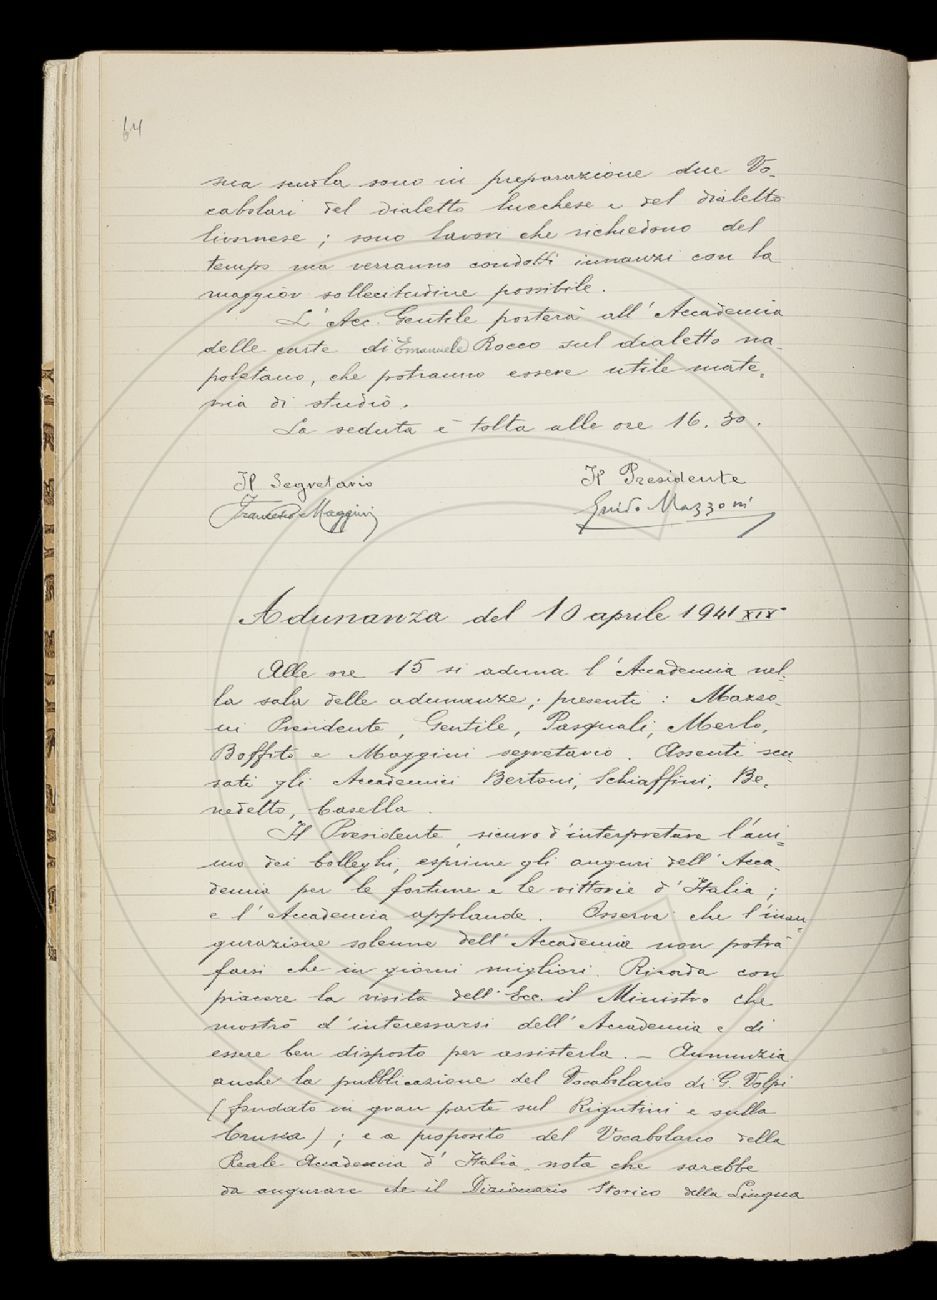 64
sua scuola sono in preparazione due Vo-
cabolari del dialetto lucchese e del dialetto
livornese ; sono lavori che richiedono del
tempo ma verranno condotti innanzi con la
maggior sollecitudine possibile .
L' Acc. Gentile porterà all' Accademia
delle carte di Emanuele Rocco sul dialetto na-
poletano, che potranno essere utile mate-
ria di studio .
La seduta è tolta alle ore 16. 30 .
Il Segretario
Il Presidente
Francesco Maggini
Guido Mazzoni
Adunanza del 10 aprile 1941 XIX°
Alle ore 15 si aduna l' Accademia nel-
la sala delle adunanze ; presenti : Mazzo-
ni Presidente , Gentile , Pasquali, Merlo,
Boffito e Maggini segretario . Assenti scu-
sati gli Accademici Bertoni, Schiaffini, Be-
nedetto, Casella .
Il Presidente, sicuro d'interpretare l'ani-
mo dei Colleghi, esprime gli auguri dell' Acca-
demia per le fortune e le vittorie d' Italia ;
e l' Accademia applaude . Osserva che l'inau-
gurazione solenne dell' Accademia non potrà
farsi che in giorni migliori . Ricorda con
piacere la visita dell' Ecc. il Ministro che
mostrò d' interessarsi dell' Accademia e di
essere ben disposto per assisterla . – Annunzia
anche la pubblicazione del Vocabolario di G. Volpi
( fondato in gran parte sul Rigutini e sulla
Crusca ) ; e a proposito del Vocabolario della
Reale Accademia d' Italia nota che sarebbe
da augurare che il Dizionario Storico della Lingua